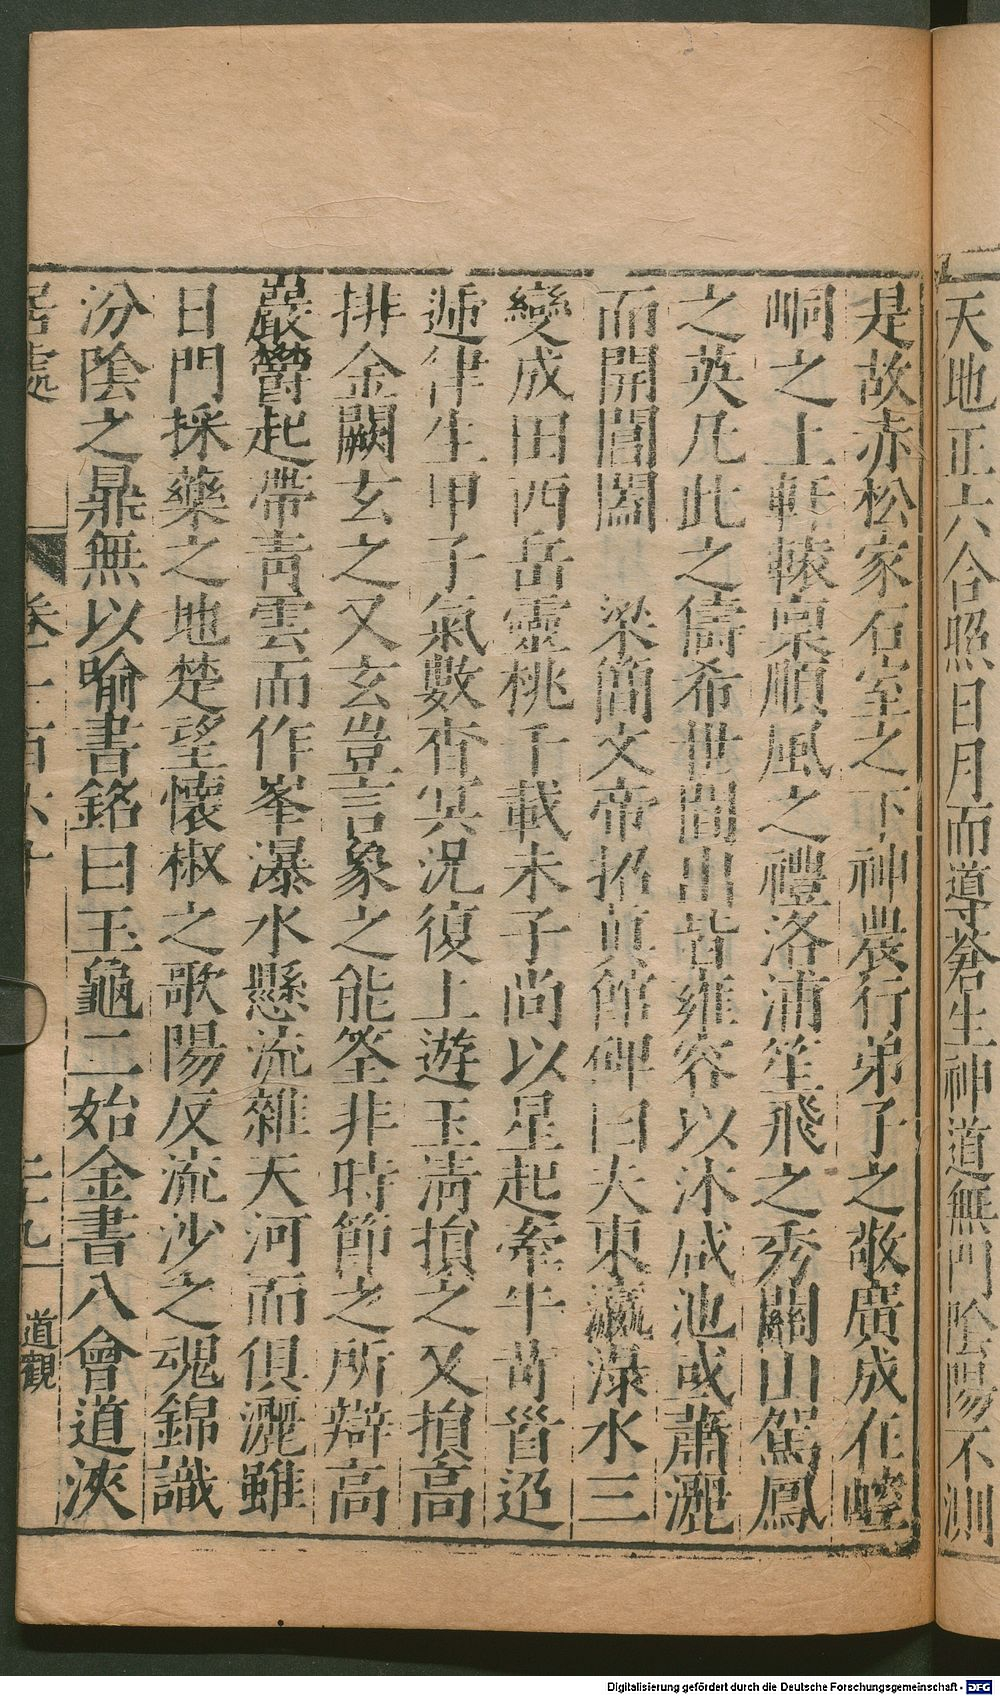 天地正六合照日月而導蒼生神道無門陰陽不測
是故赤松家石室之下神農行弟子之敬廣成在崆
峒之上軒轅稟順風之禮洛浦笙飛之秀關山駕鳳
之英凡此之儔希世間出皆雍容以沐咸池或蕭灑
而開閶闔　梁簡文帝招眞館碑曰夫東瀛瀑水三
變成田西岳靈桃千載未子尚以星起牽牛苛晉迢
遞律生甲子氣數杳冥況復上遊玉清損之又損高
排金闕玄之又玄豈言象之能筌非時節之所辯高
嚴鬱起帶青雲而作峯瀑水懸流雜天河而俱灑雖
日門採藥之地楚望懷椒之歌陽反流沙之魂錦識
汾陰之鼎無以喻書銘曰玉龜二始金書八會道浹
居處
二九
道觀
Digitalisierung gefördert durch die Deutsche Forschungsgemeinschaft - DFG